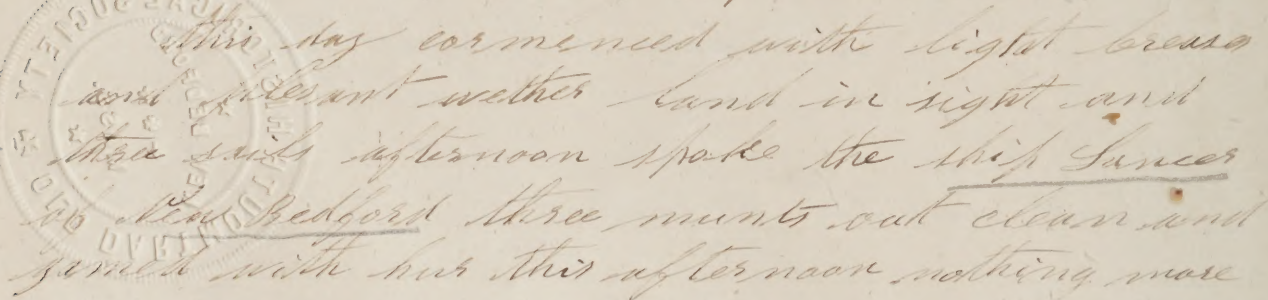 this day commenced with light breases
and plesant wether land in sight and
three sails afternoon spoke the ship Lancer
of New Bedford three munts out clean and
gamed with hur this afternoon nothing more
OLD DARTMOUTH HISTORICAL SOCIETY
NEW BEDFORD